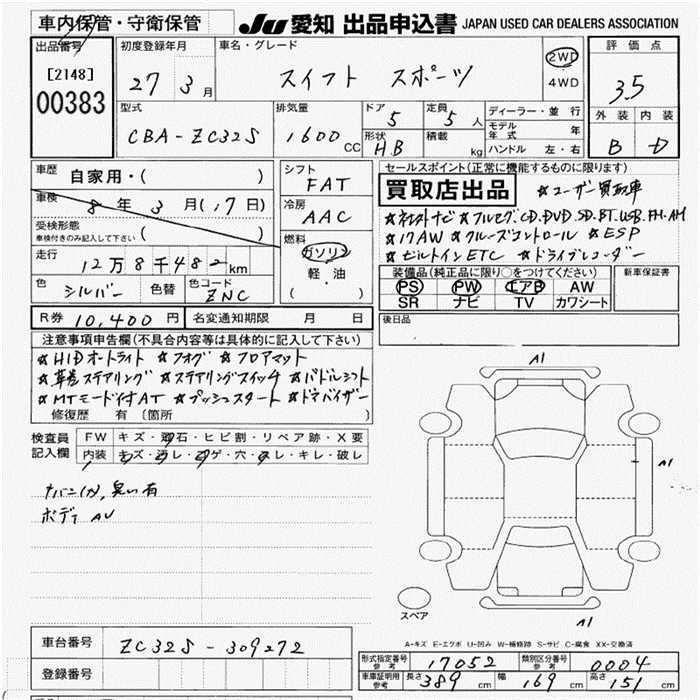 車内保管・守衛保管
JU 愛知 出品申込書 JAPAN USED CAR DEALERS ASSOCIATION
出品番号 初度登録年月 車名・グレード 評価点
[2148]
00383
27 3月 スイフト スポーツ 2WD
4WD
3.5
型式 排気量 ドア 定員 ディーラー・並行 外装 内装
CBA-ZC32S 1600CC 5 5人 モデル年式 年
形状 HB 積載 kg ハンドル 左・右 B D
車歴 自家用・( )
車検 8年3月(17日)
受検形態
車検付きのみ記入して下さい ( )
走行 12万8千482km
色 シルバー 色替 色コード ZNC
シフト FAT
冷房 AAC
燃料 ガソリン
軽・油
( )
セールスポイント(正常に機能するものに限ります)
買取店出品 ☆ユーザー買取車
☆ネオトナビ ☆フルセグ.CD.DVD.SD.BT.USB.FM.AM
☆17AW ☆クルーズコントロール ☆ESP
☆ビルトインETC ☆ドライブレコーダー
装備品(純正品に限り○をつけてください) 新車保証書
PS PW エアB AW
SR ナビ TV カワシート
R券 10,400円 名変通知期限 月 日
後日品
注意事項申告欄(不具合内容等は具体的に記入して下さい)
☆HIDオートライト ☆フォグ ☆フロアマット
☆革巻ステアリング ☆ステアリングスイッチ ☆パドルシフト
☆MTモード付AT ☆プッシュスタート ☆ドアバイザー
修復歴 有 〔箇所 〕
検査員記入欄
FW キズ・飛石・ヒビ割・リペア跡・X要
内装 キズ・汚レ・コゲ・穴・スレ・キレ・破レ
タバコ(カ),臭い有
ボディ AU
A1
A1
A1
スペア
A-キズ E-エクボ U-凹み W-補修跡 S-サビ C-腐食 XX-交換済
車台番号 ZC32S-309272
登録番号
形式指定番号 参考 17052 類別区分番号 参考 0004
車庫証明用 参考 長さ 389cm 幅 169cm 高さ 151cm